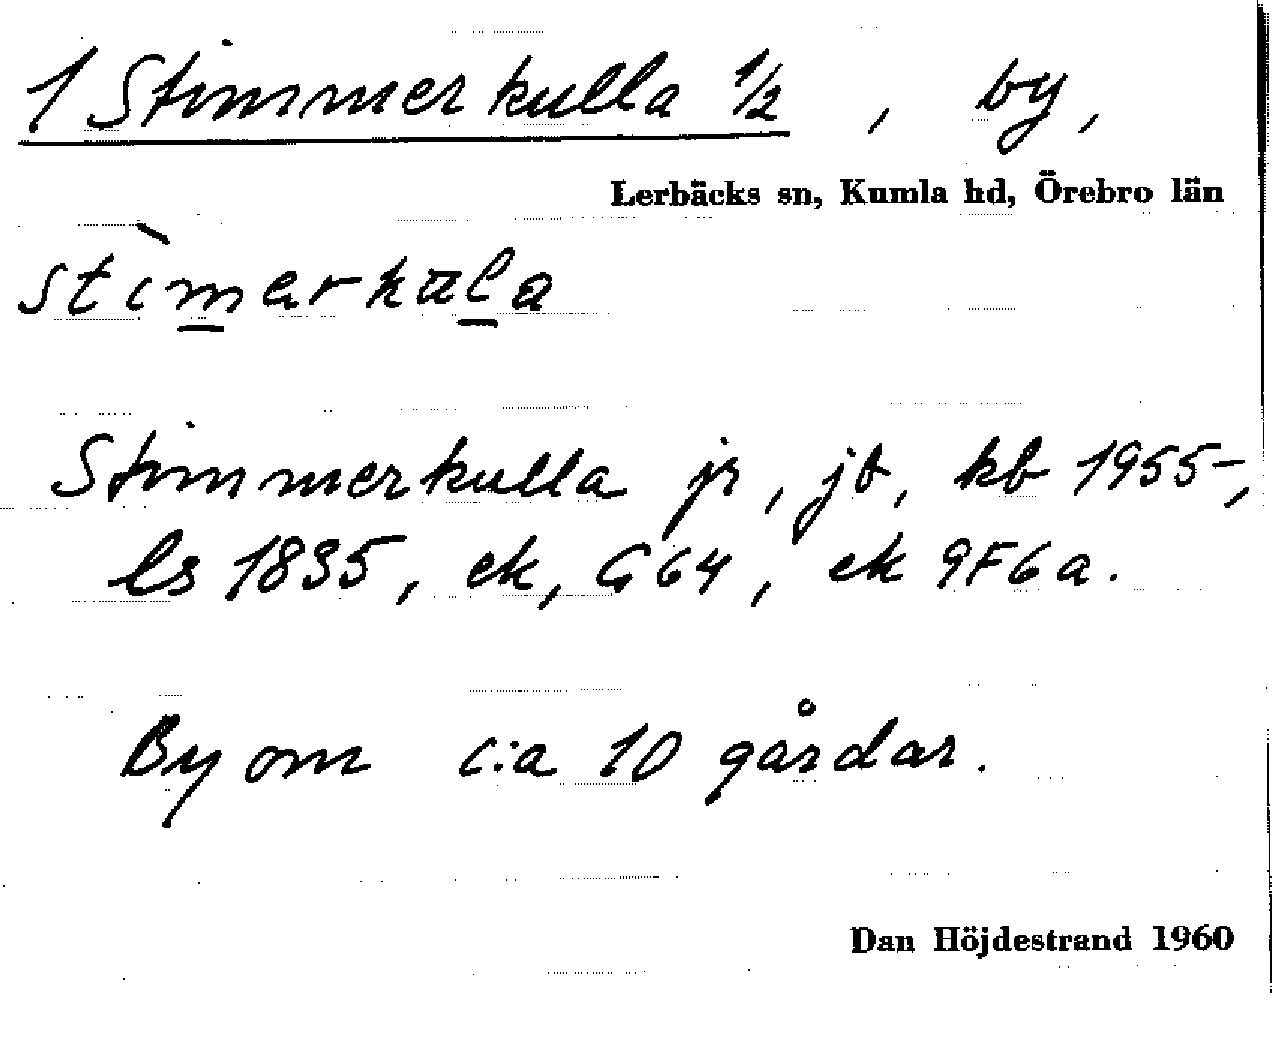 1 Stimmerkulla 1/2, by,
Lerbäcks sn, Kumla hd, Örebro län
stìmerkula
Stimmerkulla jr, jb, kb 1955-,
ls 1835, ek, G64, ek 9F6a.
By om c:a 10 gårdar.
Dan Höjdestrand 1960